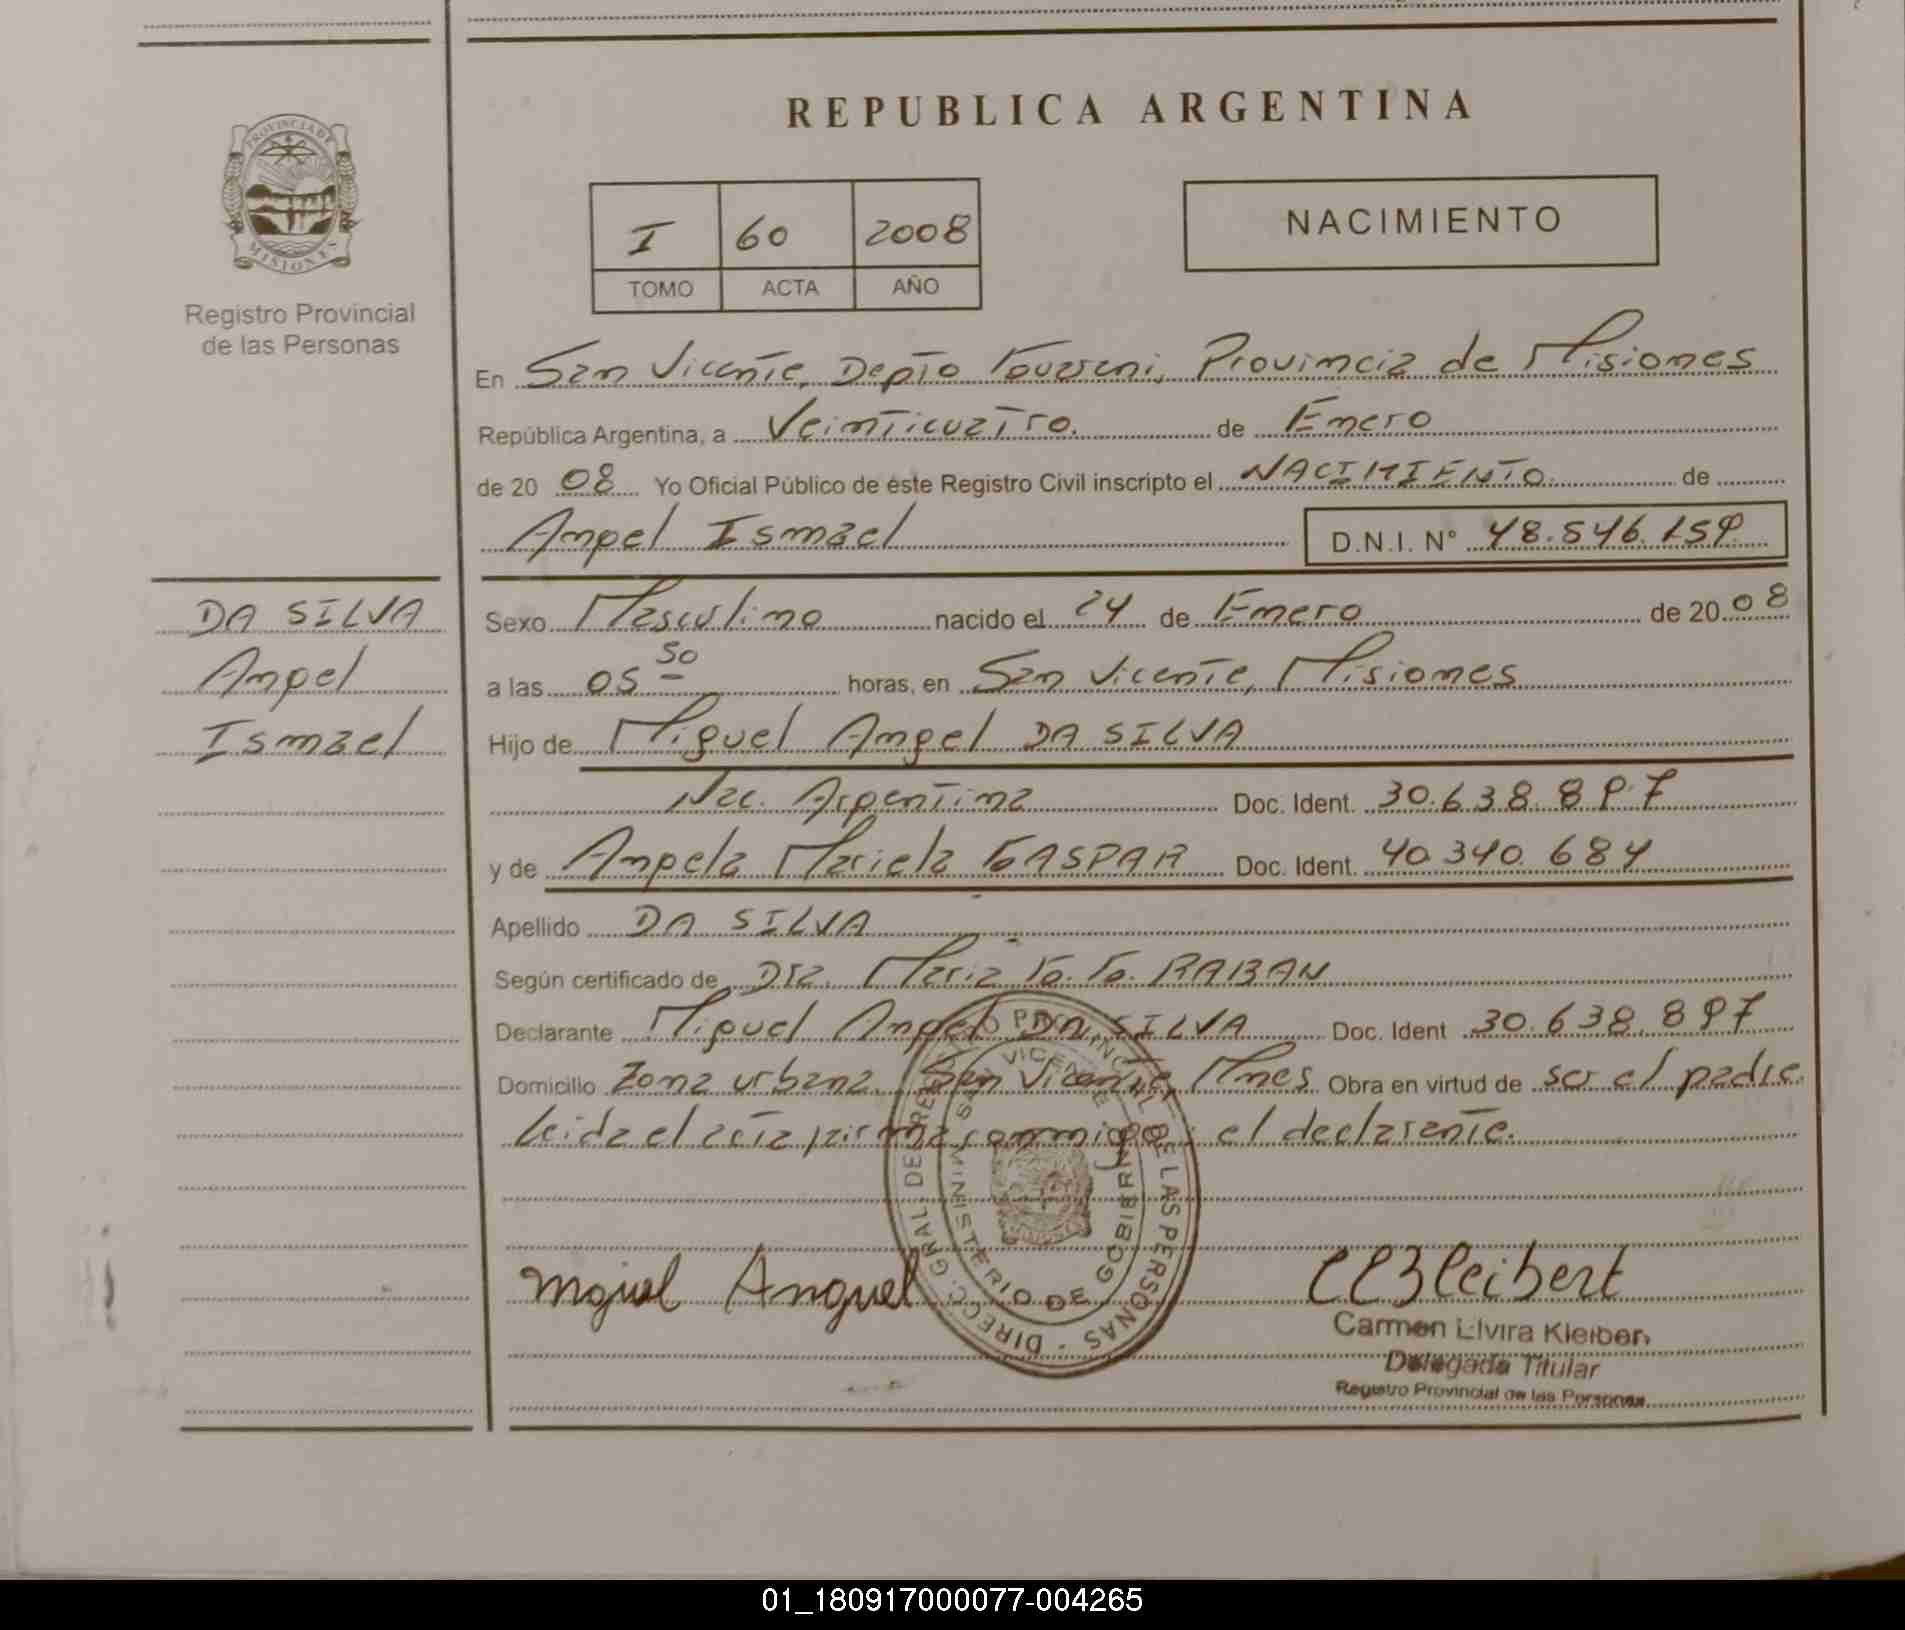 REPUBLICA ARGENTINA
PROVINCIA DE
MISIONES
Registro Provincial
de las Personas
I 60 2008
TOMO ACTA AÑO
NACIMIENTO
En San Vicente, Depto Guarani, Provincia de Misiones
República Argentina, a Veinticuatro. de Enero
de 20 08 Yo Oficial Público de éste Registro Civil inscripto el NACIMIENTO de
Angel Ismael D.N.I. N° 48.546.159
DA SILVA
Angel
Ismael
Sexo Masculino nacido el 24 de Enero de 20 08
a las 05 50 horas, en San Vicente, Misiones
Hijo de Miguel Angel DA SILVA
Nac. Argentina Doc. Ident. 30.638.897
y de Angela Mariela GASPAR Doc. Ident. 40.340.684
Apellido DA SILVA
Según certificado de Dra. Maria G. G. RABAN
Declarante Miguel Angel DA SILVA Doc. Ident 30.638.897
Domicilio Zona urbana, San Vicente, Mnes. Obra en virtud de ser el padre.
leida el acta firma conmigo: el declarante.
DIRECC. GRAL. DE REG PROVINCIAL DE LAS PERSONAS
SAN VICENTE
MINISTERIO DE GOBIERNO
Miguel Anguel
Carmen Elvira Kleibert
Delegada Titular
Registro Provincial de las Personas
01_180917000077-004265